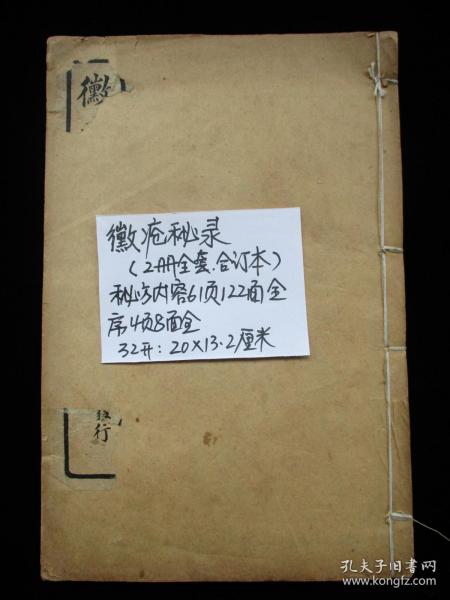 黴
黴疮秘录
（2册全套.合订本）
秘方内容61页122面全
序4页8面全
32开：20×13.2厘米
行
孔夫子旧书网
www.kongfz.com